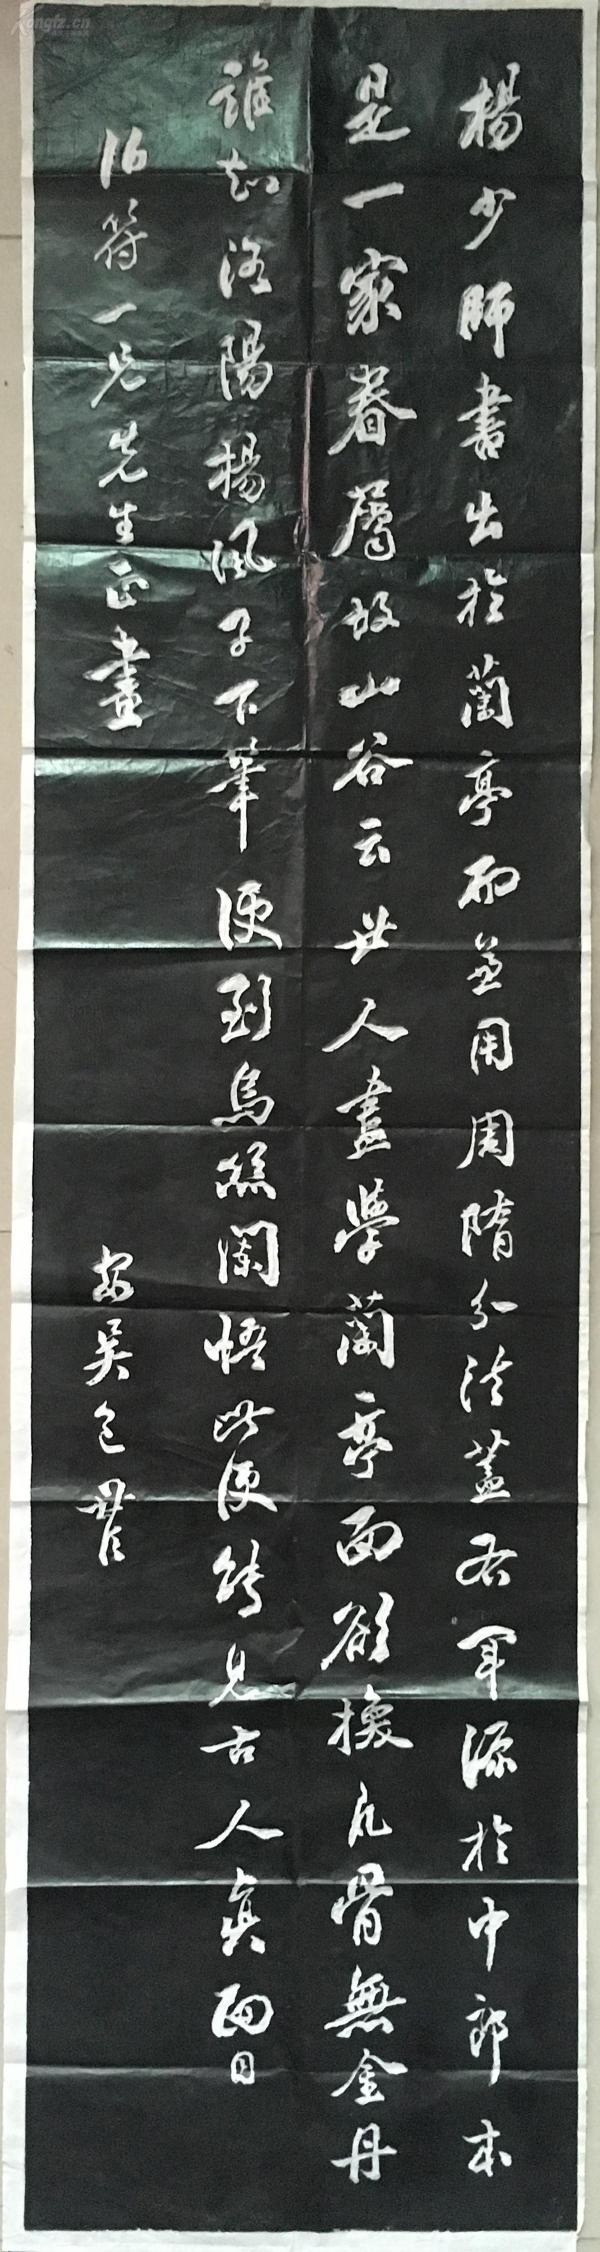 楊少師書出於蘭亭而兼用周隋分法蓋右軍源於中郎本
是一家眷屬故山谷云世人盡學蘭亭面欲換凡骨無金丹
誰知洛陽楊風子下筆便到烏絲闌悟此便能見古人真面目
伯符一兄先生正畫
安吳包世臣
Kongfz.cn